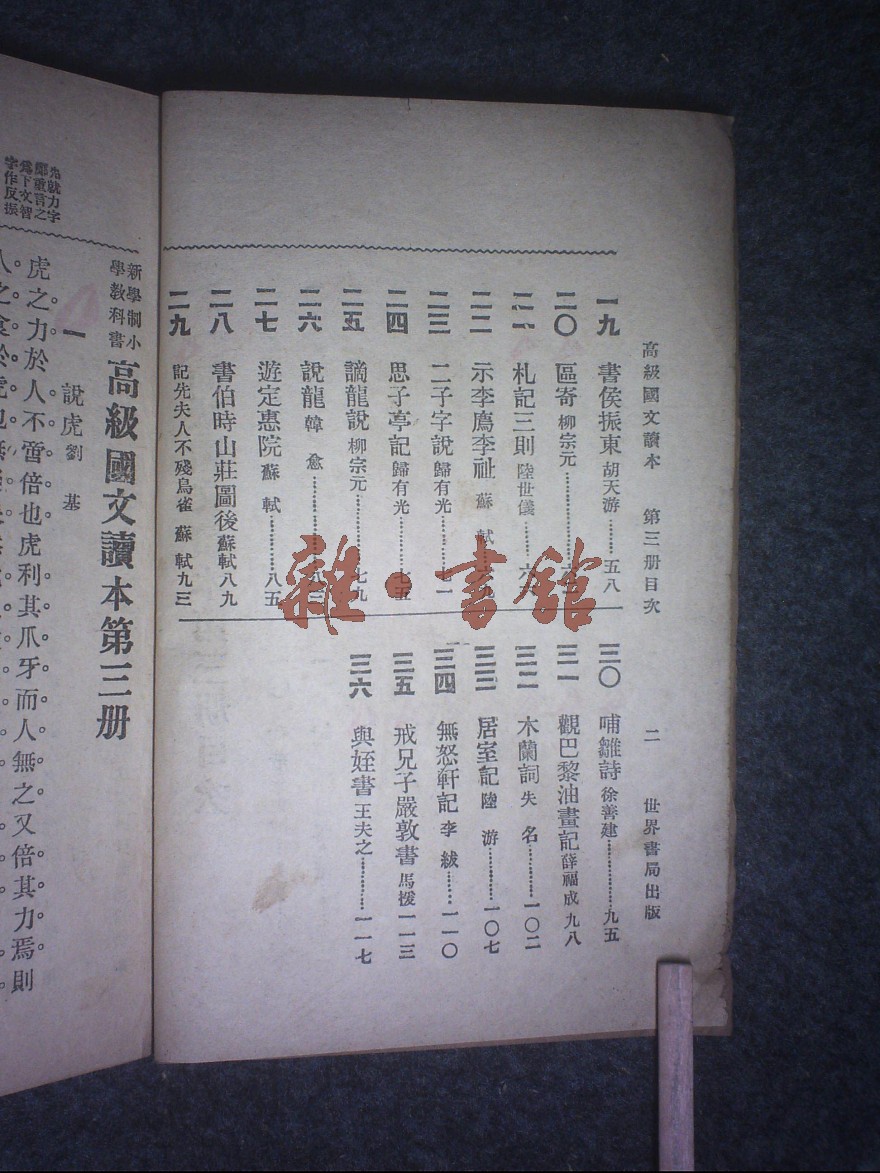 高級國文讀本 第三册目次 二 世界書局出版
一九 書侯振東 胡天游……五八
二〇 區寄 柳宗元
二一 札記三則 陸世儀
二二 示李廌李祉 蘇軾
二三 二子字說 歸有光
二四 思子亭記 歸有光……七五
二五 謫龍說 柳宗元……七九
二六 說龍 韓愈
二七 遊定惠院 蘇軾……八五
二八 書伯時山莊圖後 蘇軾 八九
二九 記先夫人不殘鳥雀 蘇軾 九三
三〇 哺雛詩 徐善建……九五
三一 觀巴黎油畫記 薛福成 九八
三二 木蘭詞 失名……一〇二
三三 居室記 陸游……一〇七
三四 無怒軒記 李紱……一一〇
三五 戒兄子嚴敦書 馬援 一一三
三六 與姪書 王夫之……一一七
雜·書館
新學制小學教科書 高級國文讀本第三册
一 說虎 劉基
先就力字
鄭重言之
爲下文智
字作反振
虎之力於人不啻倍也虎利其爪牙而人無之又倍其力焉則
人之食於虎也無